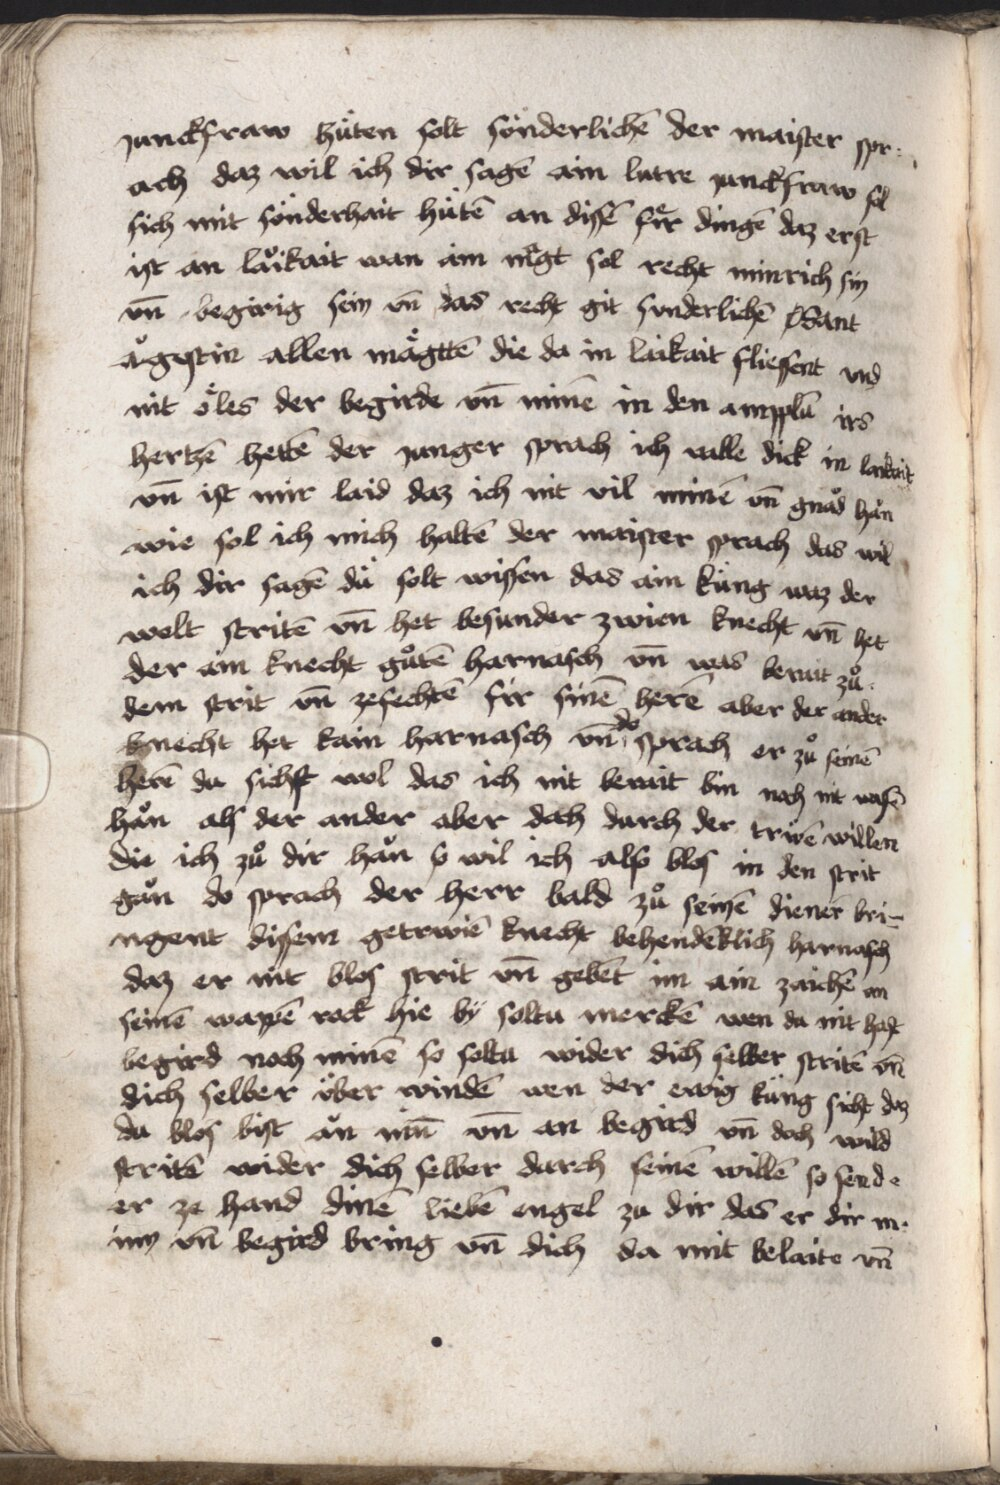 junckfraw hüten solt sönderlichē der maister spr-
ach daz wil ich dir sagē ain lutre junckfraw sol
sich mit sönderhait hütē an dissē fir dingē daz erst
ist an lauͦikait wan ain mͣgt sol recht minrich sin
vn̄ begirig sein vn̄ das recht git sunderlichē Sant
aͮgestin allen mägttē die da in laikait fliessent vnd
nit öles der begirde vn̄ minē in den ampplū irs
hertzē hettē der junger sprach ich valle dick in laikait
vn̄ ist mir laid daz ich nit vil minē vn̄ gnad haͮn
wie sol ich mich haltē der maister sprach das wil
ich dir sagē dü solt wissen das ain küng waz der
welt stritē vn̄ het besunder zwien knecht vn̄ het
der ain knecht guͦtē harnasch vn̄ was berait zuͦ
dem strit vn̄ zefechtē fir sinē herē aber der ander
knecht het kain harnasch vn̄ do sprach er zuͦ seinē
herē du sichst wol das ich nit berait bin noch nit wafē
haͮn als der ander aber doch durch der triwē willen
die ich zuͦ dir haͮn so wil ich also blos in den strit
gaͮn do sprach der herr bald zuͦ seinē dienerē bri-
ngent dissem getrwiē knecht behendēklich harnasch
daz er nit blos strit vn̄ gebēt im ain zaichē an
seinē wappē rock hie bÿ soltu merckē wen du nit hast
begird noch minē so soltu wider dich selber stritē vn̄
dich selber über windē wen der ewig küng sicht daz
du blos bist aͮn min̄ vn̄ an begird vn̄ doch wild
stritē wider dich selber durch seinē willē so sende
er ze hand dinē liebē engel zu dir das er dir m-
iny vn̄ begird bring vn̄ dich da mit belaite vn̄